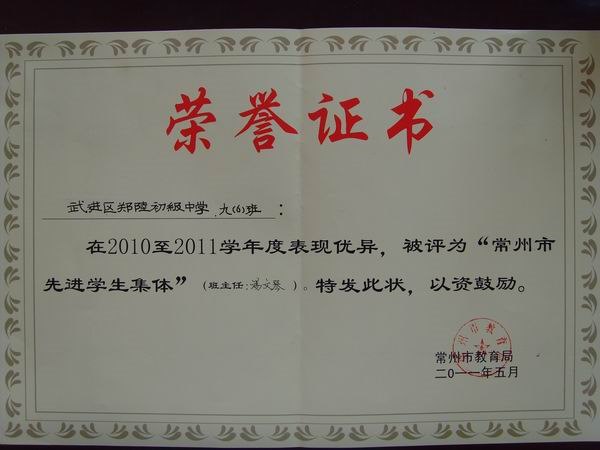 荣誉证书
武进区郑陆初级中学 九(6)班:
在2010至2011学年度表现优异，被评为“常州市
先进学生集体”(班主任:汤文琴)。特发此状，以资鼓励。
常州市教育局
二〇一一年五月